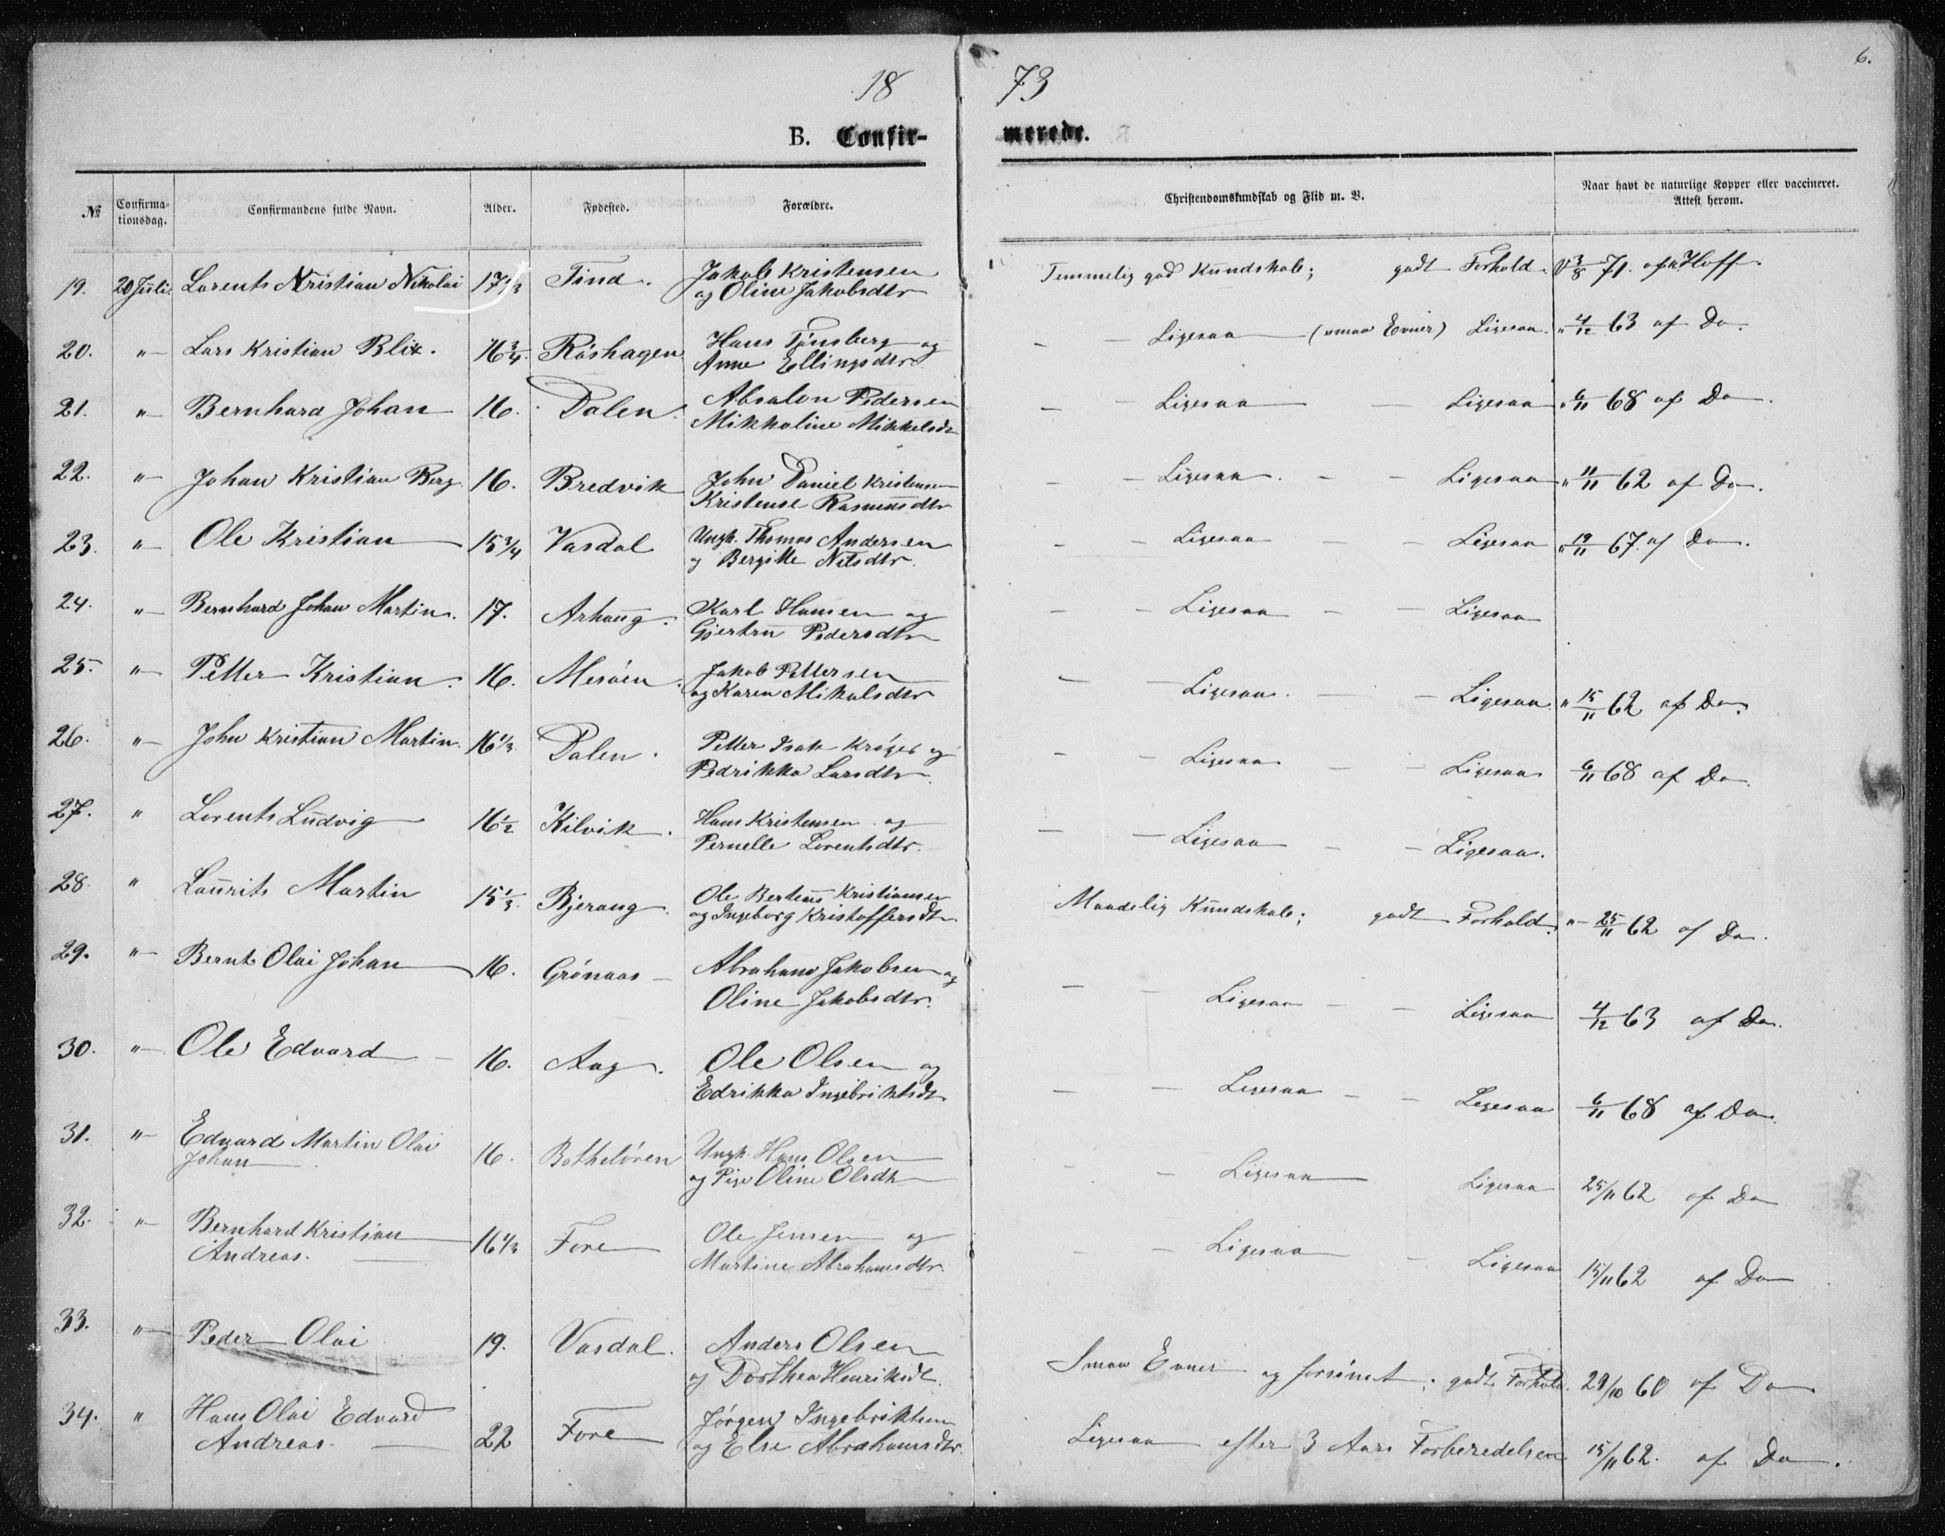 6.
18 73
B. Confir- merede.
№ Confirma-tionsdag. Confirmandens fulde Navn. Alder. Fødested. Forældre. Christendomskundskab og Flid m. V. Naar havt de naturlige Kopper eller vaccineret. Attest herom.
19. 20 Juli Lorents Kristian Nikolai Tind. Jakob Kristensen Temmelig god Kundskab; godt Forhold. V 3/8 71. af Hoff
og Oline Jakobsdtr
20. " Lars Kristian Blix. 16 3/4 Røshagen Hans Tønsberg og Ligesaa (smaa Evner) Ligesaa. " 4/12 63 af Do.
Anne Ellingsdtr
21. " Bernhard Johan 16. Dalen. Absalon Pedersen Ligesaa Ligesaa " 6/11 68 af Do.
Mikkaline Mikkelsdtr
22. " Johan Kristian Berg 16. Bredvik John Daniel Kristensen Ligesaa. Ligesaa " 11/11 62 af Do.
Kristense Rasmusdtr
23. " Ole Kristian 15 3/4 Vasdal Ungk. Thomas Andersen Ligesaa Ligesaa " 19/11 67. af Do.
og Bergitte Nilsdtr.
24. " Bernhard Johan Martin. 17. Arhaug. Karl Hansen og Ligesaa Ligesaa
Gjertru Pedersdtr
25. " Petter Kristian. 16. Mesøen. Jakob Pettersen Ligesaa. Ligesaa. " 15/11 62 af Do.
og Karen Mikalsdtr
26. " John Kristian Martin. 16 1/3. Dalen. Petter Isak Krøger og Ligesaa Ligesaa 6/11 68 af Do.
Pedrikka Larsdtr.
27. " Lorents Ludvig 16 1/2 Kilvik. Hans Kristensen og Ligesaa Ligesaa.
Pernelle Lorentsdtr.
28. " Laurits Martin 15 1/3. Bjerang. Ole Berteus Kristiansen Maadelig Kundskab; godt Forhold. " 25/11 62 af Do.
og Ingeborg Kristoffersdtr
29. " Bernt Olai Johan 16. Grønaas Abraham Jakobsen og Ligesaa Ligesaa 4/12 63 af Do.
Oline Jakobsdtr.
30. " Ole Edvard 16. Aag. Ole Olsen og Ligesaa Ligesaa 6/11 68 af Do.
Edrikka Ingebriktsdtr
31. " Edvard Martin Olai 16. Botheløren Ungk. Hans Olsen Ligesaa Ligesaa 25/11 62 af Do
Johan og Pige Oline Olsdtr
32. " Bernhard Kristian 16 1/3 Fore Ole Jensen og Ligesaa Ligesaa 15/11 62 af Do
Andreas. Martine Abrahamsdtr.
33. " Peder Olai 19. Vasdal. Anders Olsen Smaa Evner og forsømt; godt Forhold. 29/10 60 af Do
og Dorthea Henriksdt.
34. " Hans Olai Edvard 22 Fore Jørgen Ingebriktsen Ligesaa efter 3 Aars Forberedelse 15/11 62. af Do.
Andreas. og Else Abrahamsdtr.